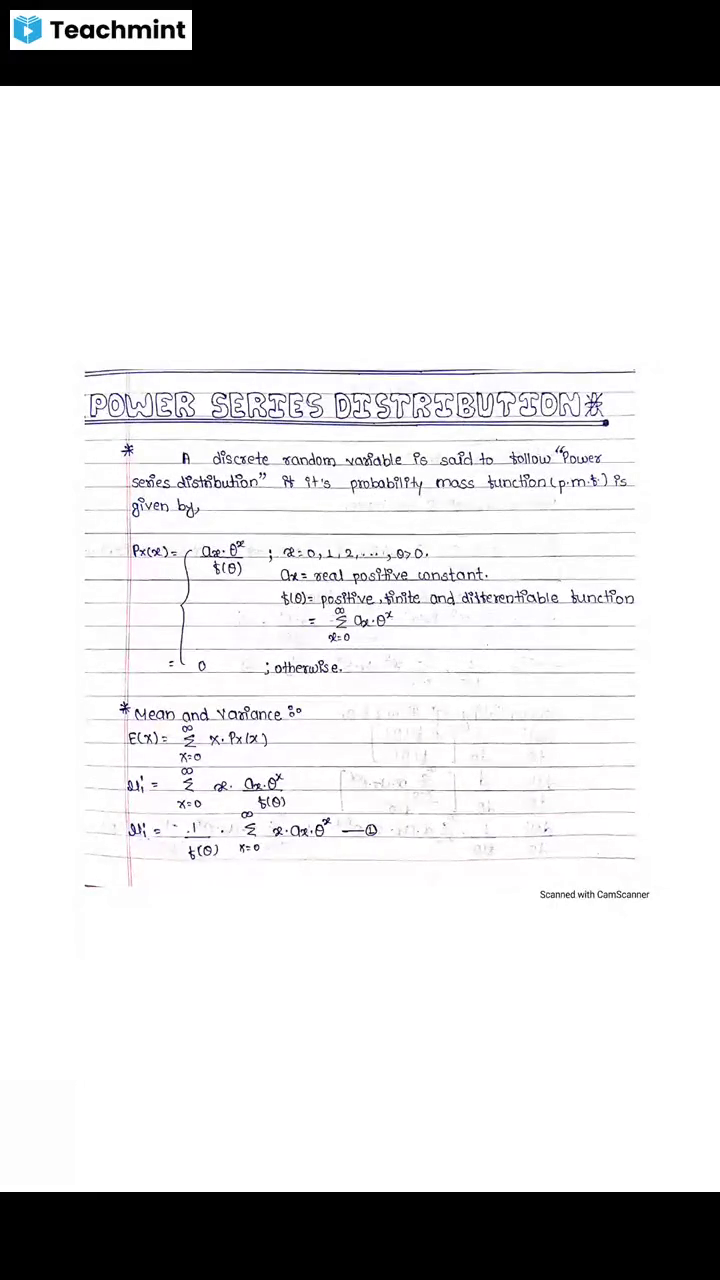 Teachmint
POWER SERIES DISTRIBUTION*
* A discrete random variable is said to follow "Power
series distribution" if it's probability mass function (p.m.f.) is
given by,
Px(x) = { ax·θ^x / f(θ) ; x = 0, 1, 2, ..., θ>0.
ax = real positive constant.
f(θ) = positive, finite and differentiable function
= ∞ Σ x=0 ax·θ^x
= 0 ; otherwise.
* Mean and Variance :-
E(x) = ∞ Σ x=0 x·Px(x)
μ₁' = ∞ Σ x=0 x · ax·θ^x / f(θ)
μ₁' = 1 / f(θ) · ∞ Σ x=0 x·ax·θ^x —①
Scanned with CamScanner